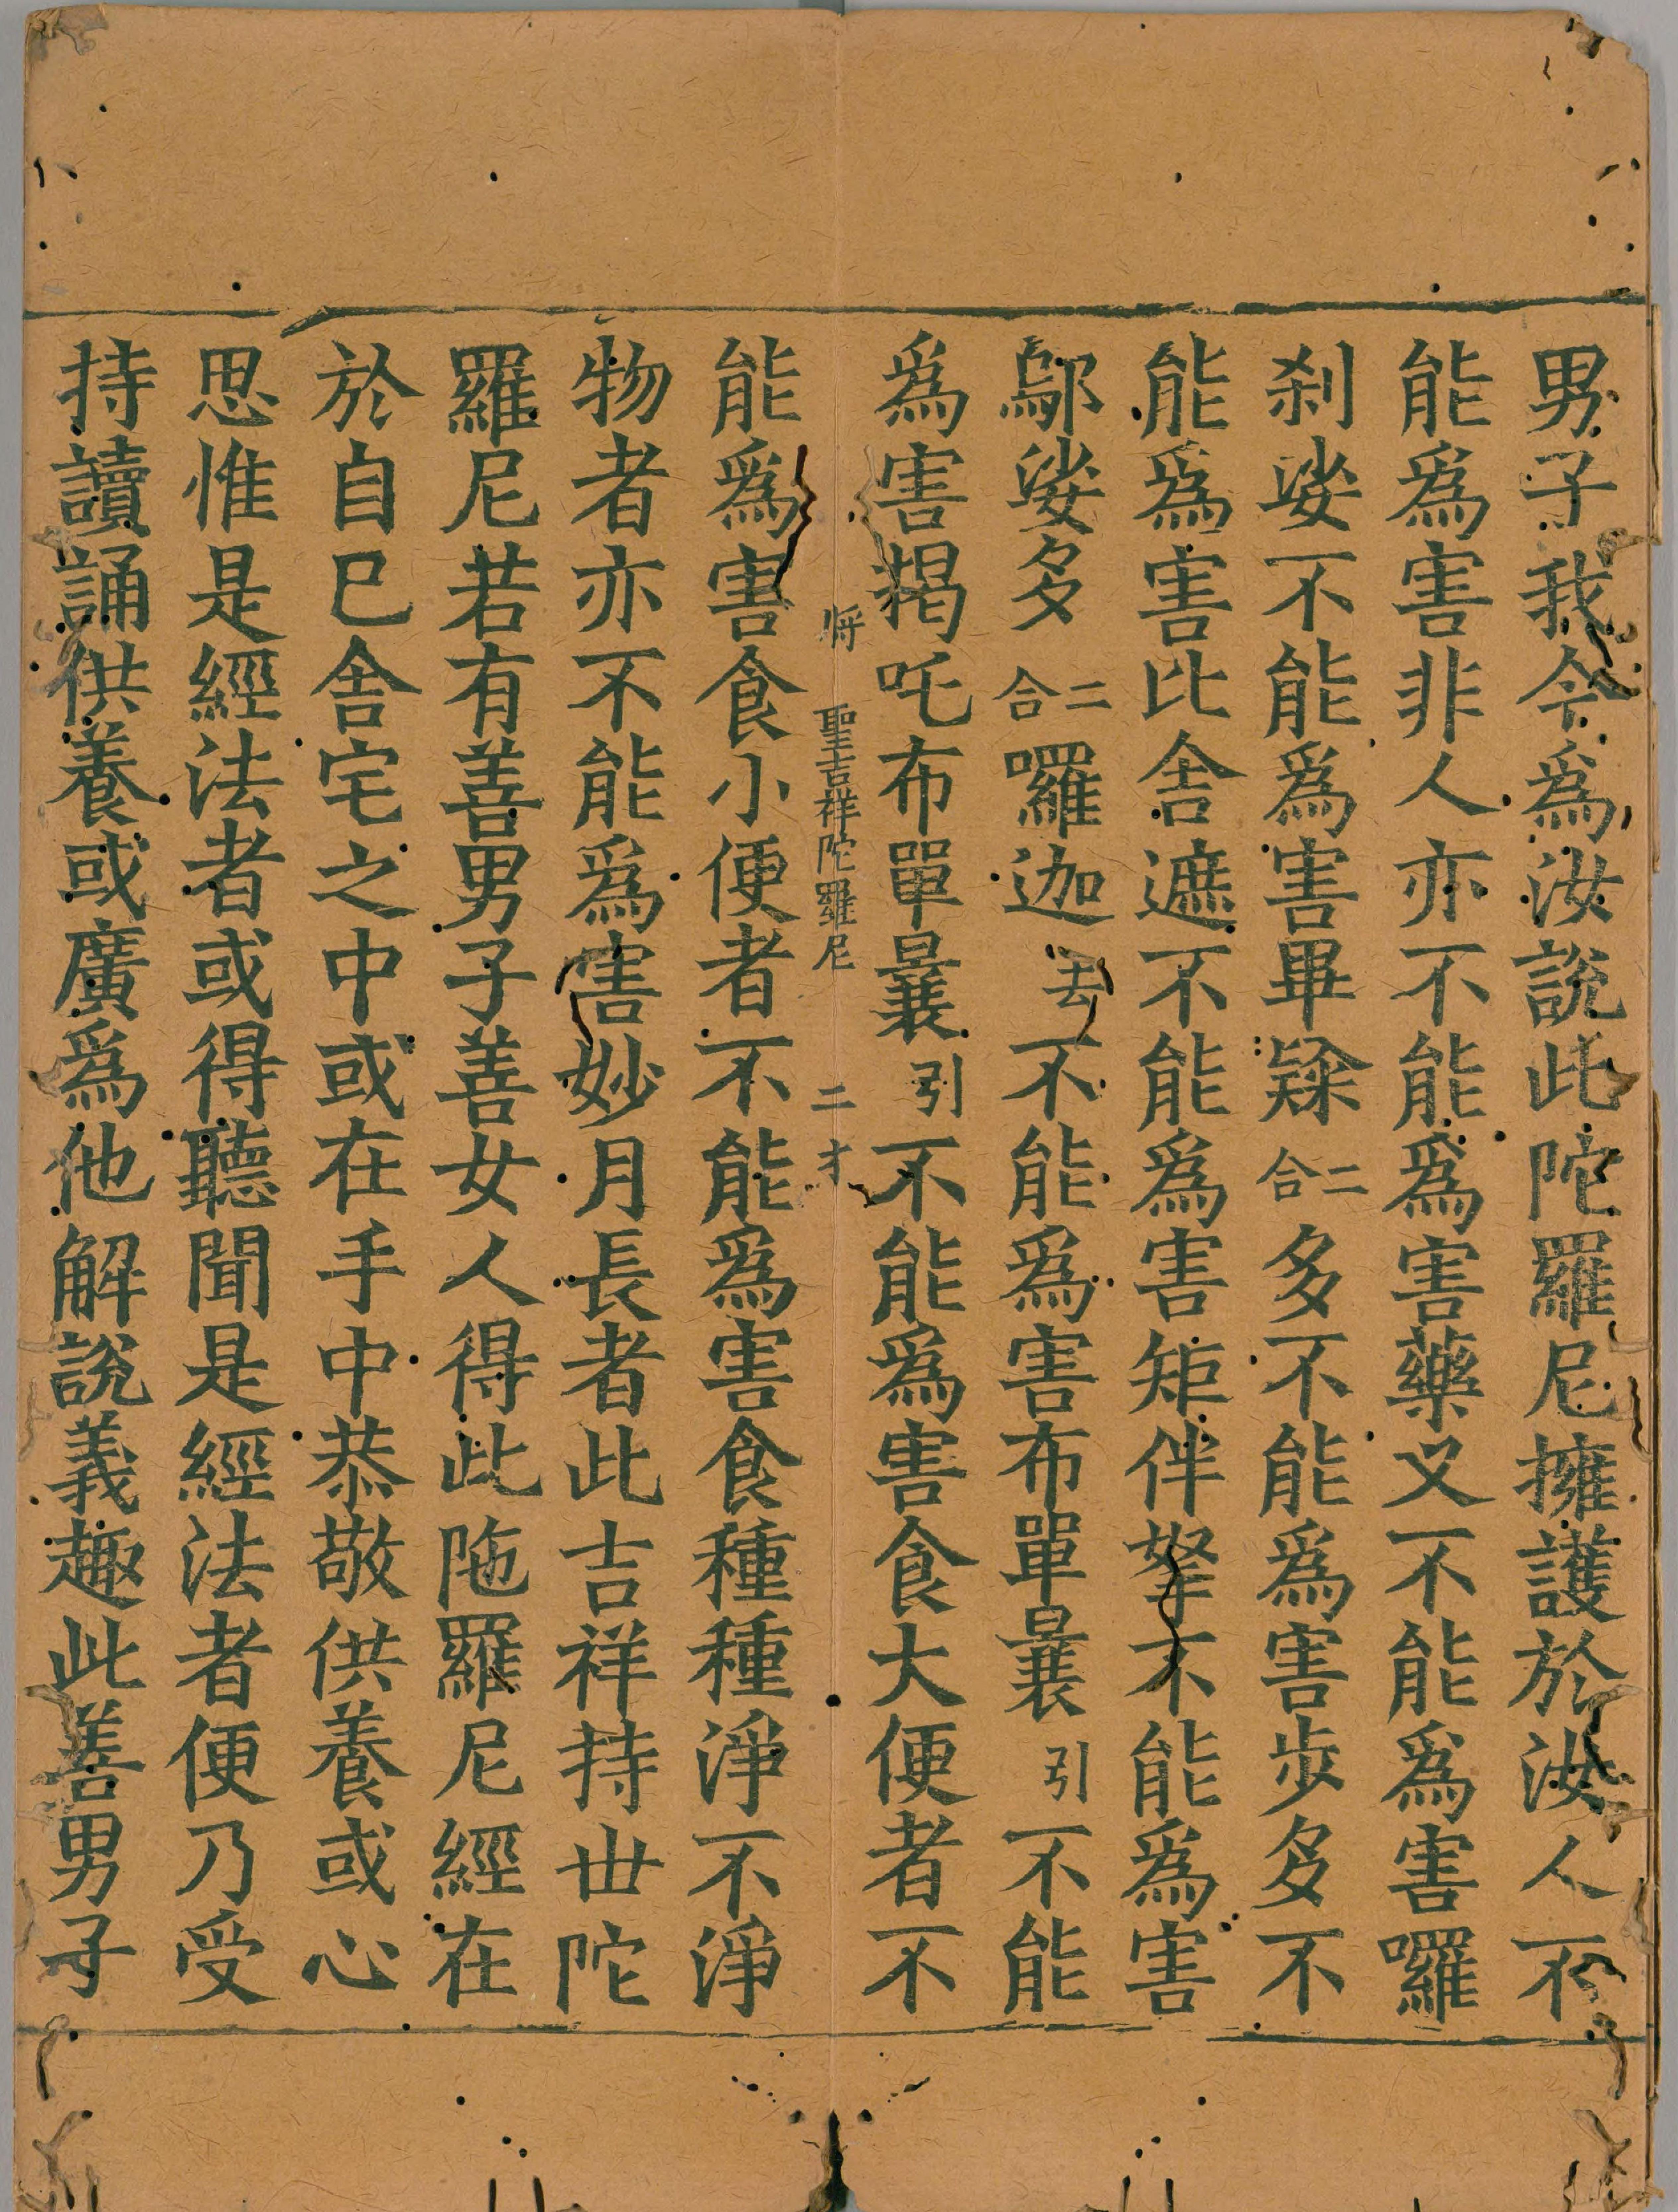 男子我今爲汝說此陀羅尼擁護於汝人不
能爲害非人亦不能爲害藥叉不能爲害囉
刹娑不能爲害畢㗚二合多不能爲害步多不
能爲害比舍遮不能爲害矩伴拏不能爲害
鄔娑多二合囉迦去不能爲害布單曩引不能
爲害羯吒布單曩引不能爲害食大便者不
將 聖吉祥陀羅尼 二 才
能爲害食小便者不能爲害食種種淨不淨
物者亦不能爲害妙月長者此吉祥持丗陀
羅尼若有善男子善女人得此陁羅尼經在
於自巳舍宅之中或在手中恭敬供養或心
思惟是經法者或得聽聞是經法者便乃受
持讀誦供養或廣爲他解說義趣此善男子